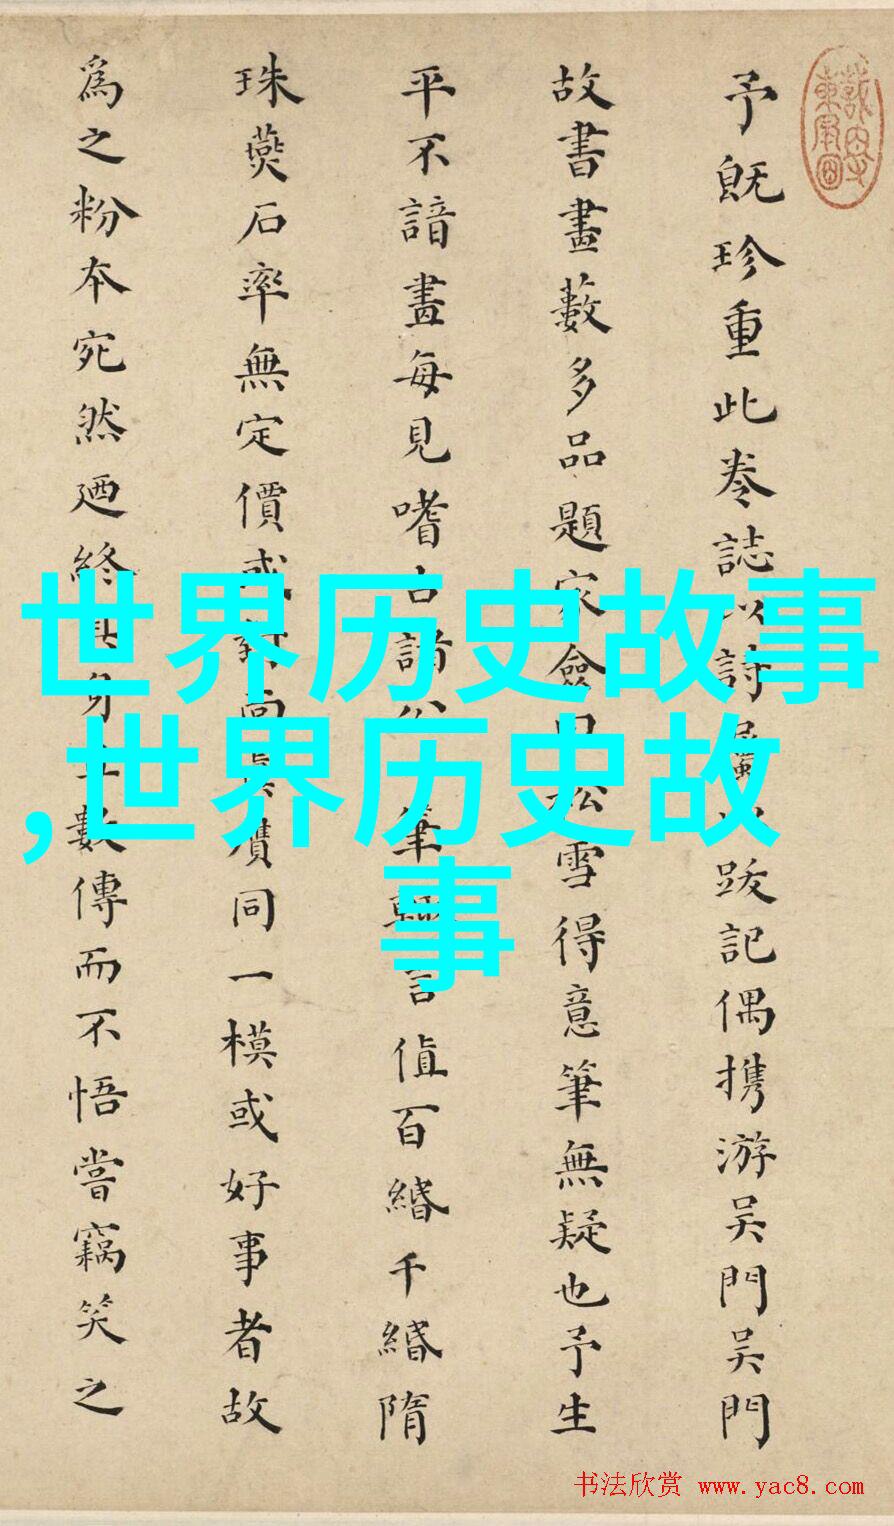 予既珍重此卷誌以詩屬以跋記偶携游吴門吴門
故書畫藪多品題家僉曰松雪得意筆無疑也予生
平不諳畫每見嗜古諸公筆輒言值百緡千緡隋
珠燕石率無定價或對面真贋同一模或好事者故
為之粉本宛然廼終其身五數傳而不悟嘗竊笑之
世界历史故事
,世界历史故
事
书法欣赏 www.yac8.com